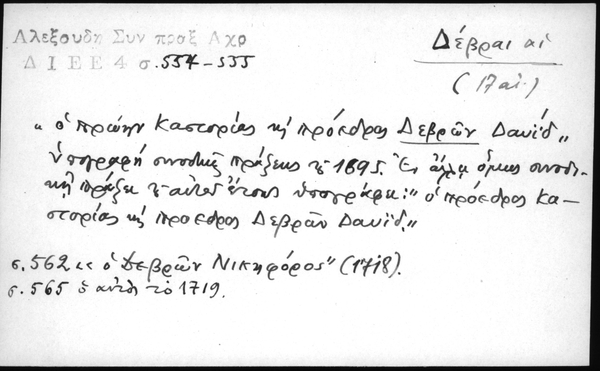 Αλεξουδη Συν πραξ Αχρ
Δ Ι Ε Ε 4 σ. 554-555
Δέβραι αἱ
(17 αἰ.)
« ὁ πρώην Καστορίας κ᾽ πρόεδρος Δεβρῶν Δαυίδ „
ὑπογραφὴ συνοδικῆς πράξεως τοῦ 1695. Ἐν ἄλλῃ ὅμως συνοδι-
κῇ πράξει τοῦ αὐτοῦ ἔτους ὑπογράφει: " ὁ πρόεδρος Κα-
στορίας κ᾽ προεδρος Δεβρῶν Δαυΐδ „
σ. 562 « ὁ Δεβρῶν Νικηφόρος" (1718).
σ. 565 ὁ αὐτὸς τὸ 1719.